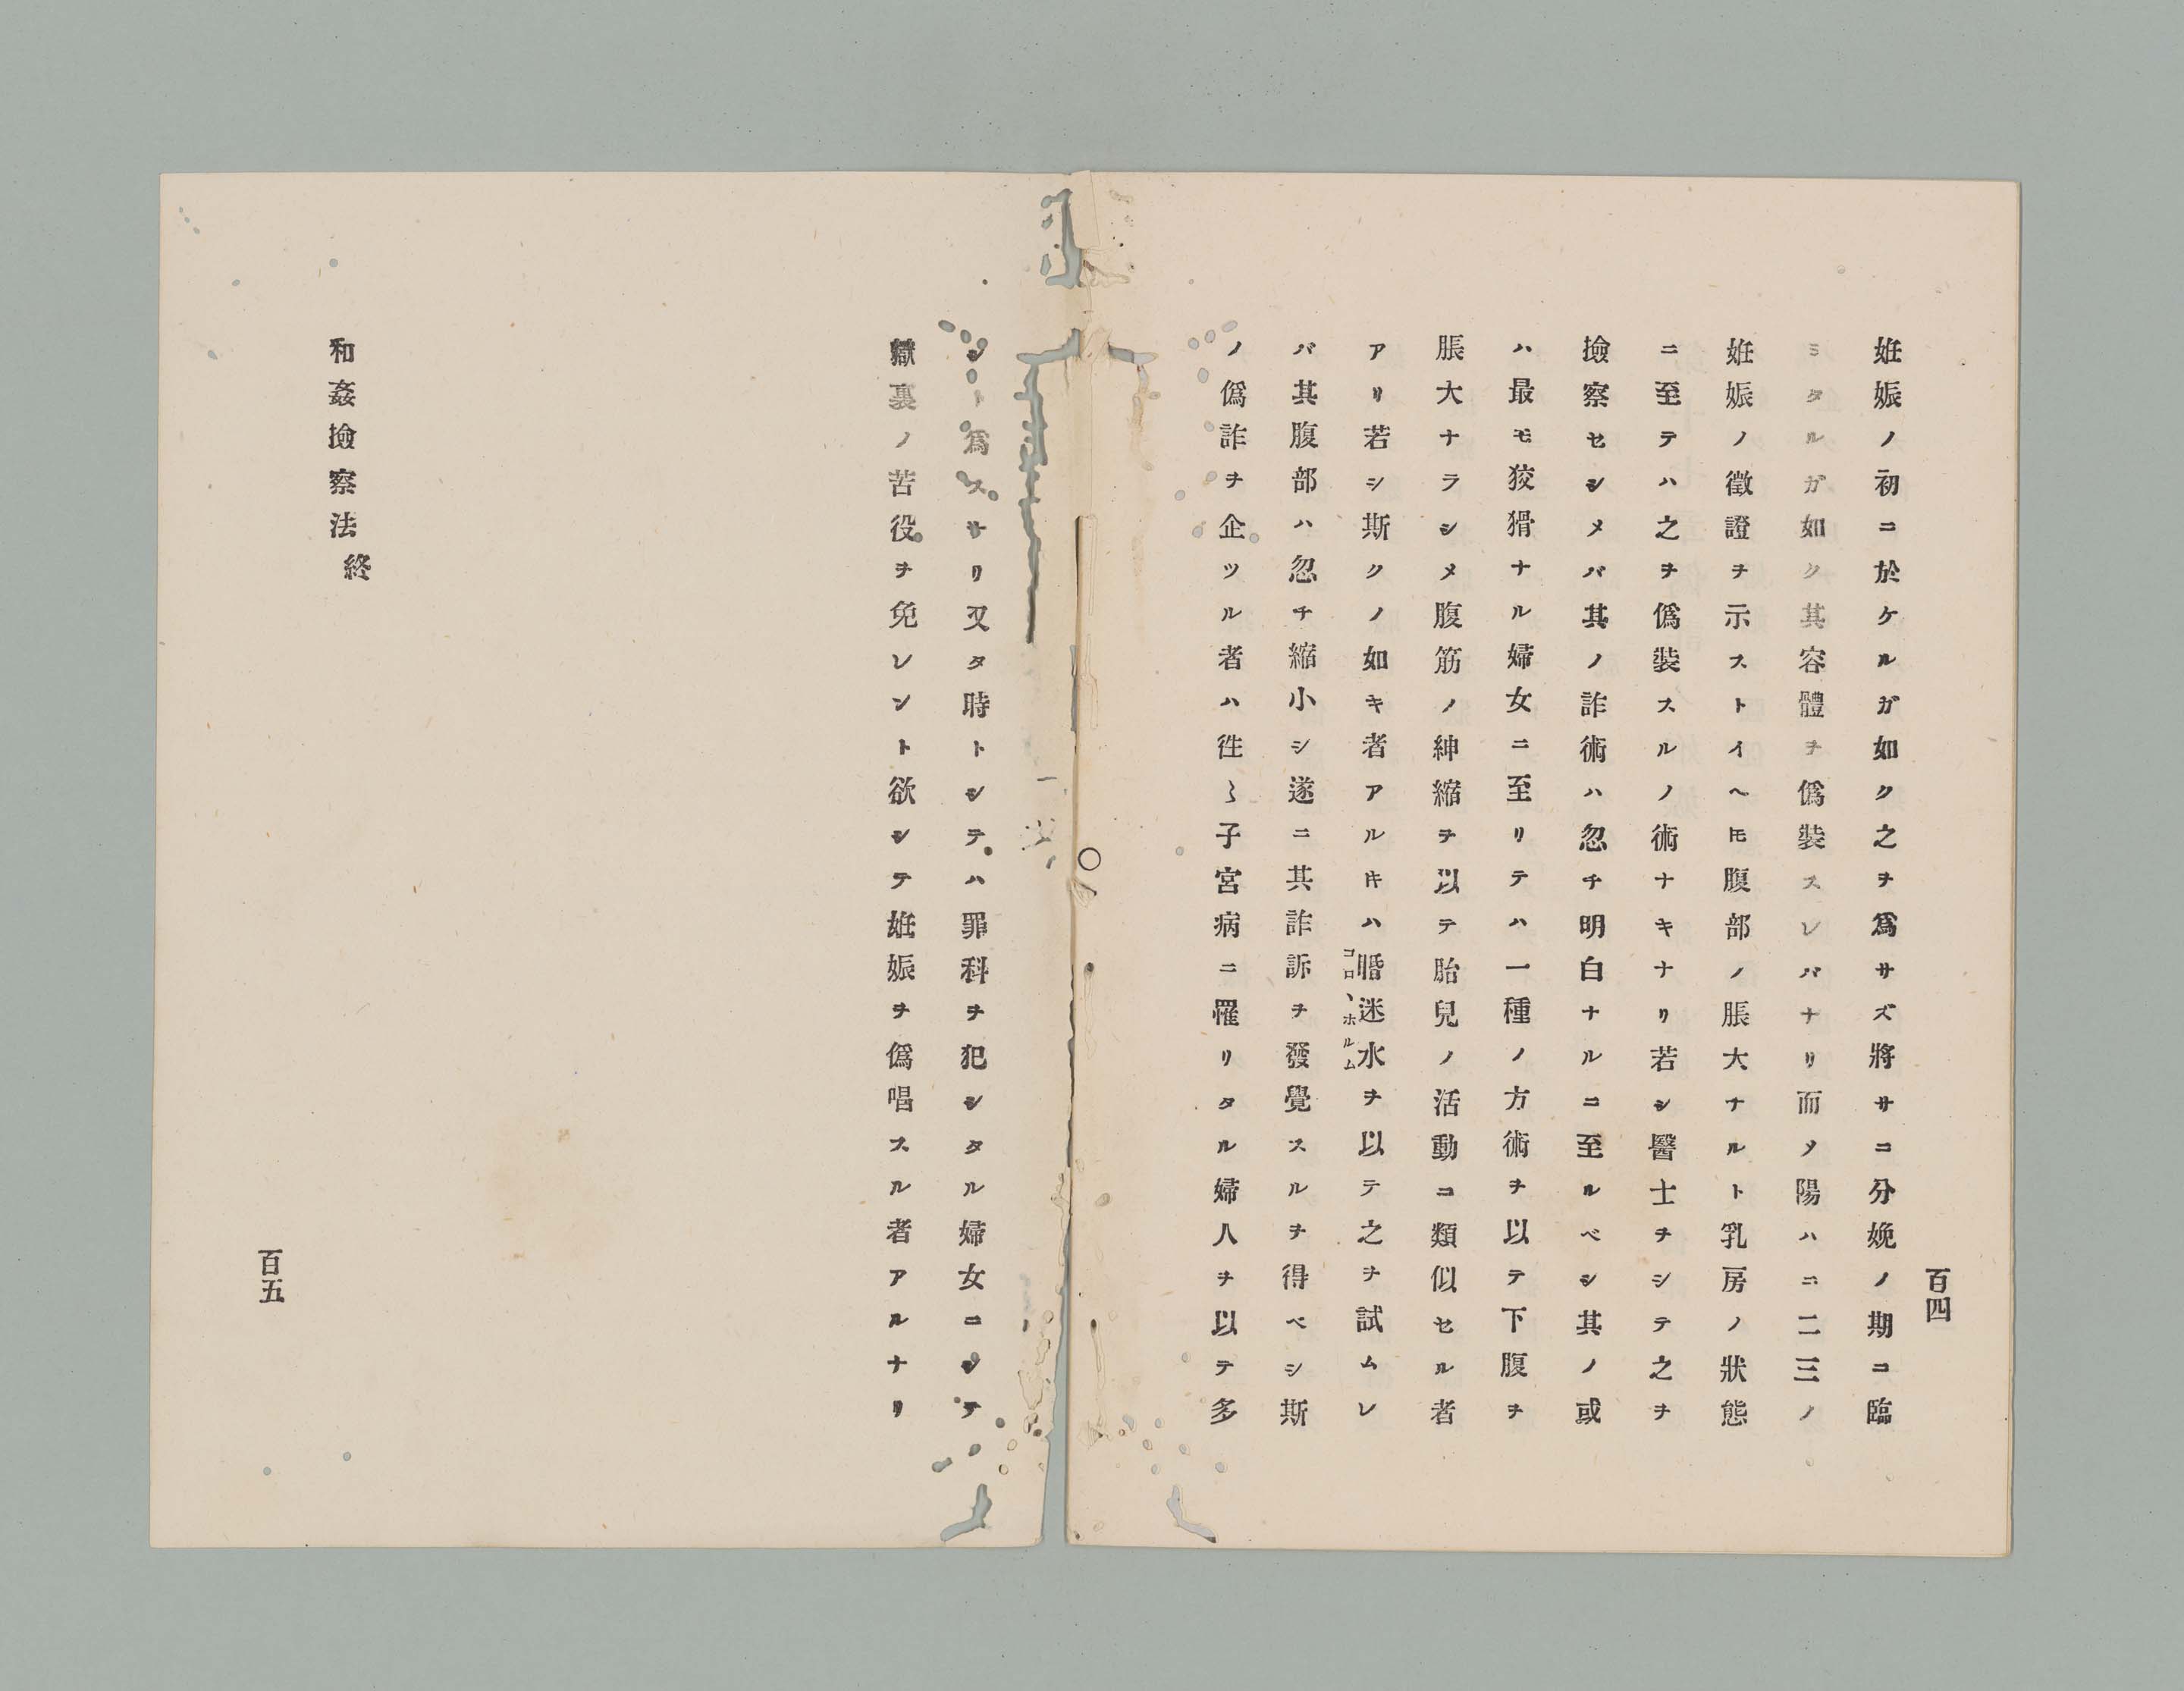 百四
姙娠ノ初ニ於ケルガ如ク之ヲ爲サズ將サニ分娩ノ期ニ臨
ミタルガ如ク其容體ヲ僞裝スレバナリ而〆陽ハニ二三ノ
姙娠ノ徵證ヲ示ストイヘ𪜈腹部ノ脹大ナルト乳房ノ狀態
ニ至テハ之ヲ僞裝スルノ術ナキナリ若シ醫士ヲシテ之ヲ
撿察セシメバ其ノ詐術ハ忽チ明白ナルニ至ルベシ其ノ或
ハ最モ狡猾ナル婦女ニ至リテハ一種ノ方術ヲ以テ下腹ヲ
脹大ナラシメ腹筋ノ紳縮ヲ以テ胎兒ノ活動ニ類似セル者
アリ若シ斯クノ如キ者アルキハ昏迷水ヲ以テ之ヲ試ムレ
コロヽホルム
バ其腹部ハ忽チ縮小シ遂ニ其詐訴ヲ發覺スルヲ得ベシ斯
ノ僞詐ヲ企ツル者ハ徃〻子宮病ニ罹リタル婦人ヲ以テ多
シト爲スサリ又タ時トシテハ罪科ヲ犯シタル婦女ニシテ
獄裏ノ苦役ヲ免レント欲シテ姙娠ヲ僞唱スル者アルナリ
和姦撿察法終
百五